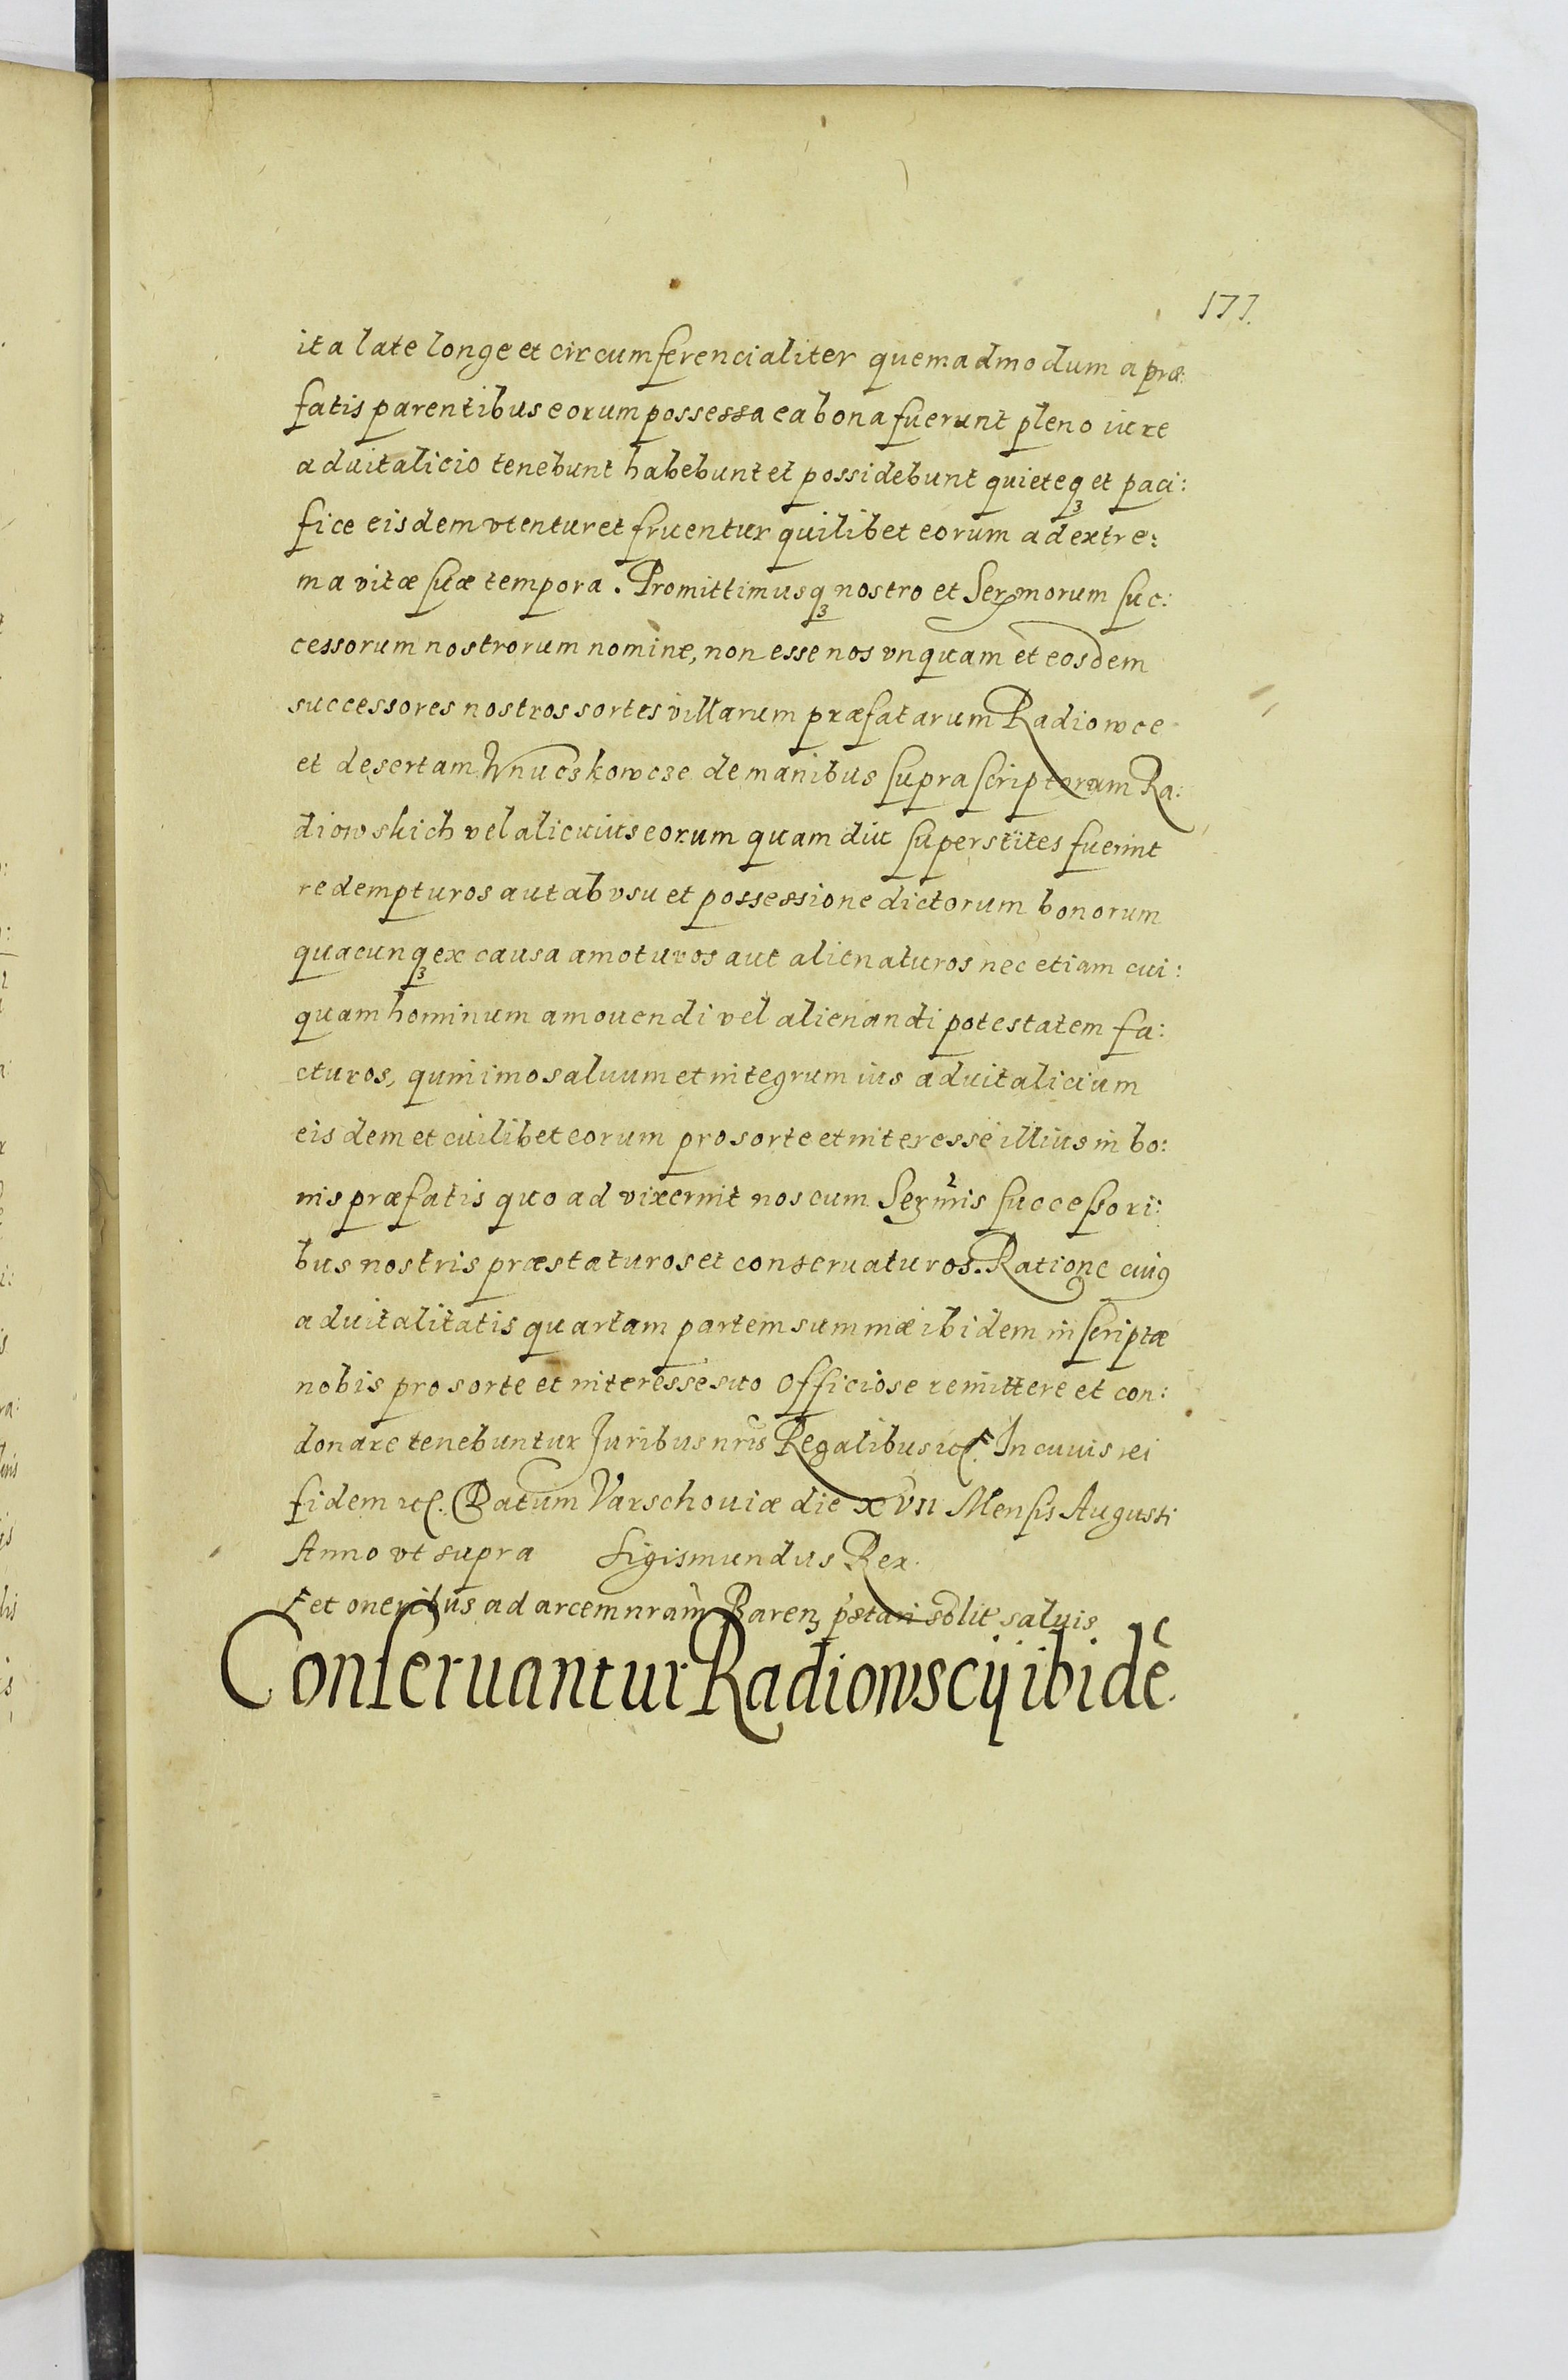 177.
ita late longe et circumferencialiter quemadmodum a præ:
fatis parentibus eorum possessa ea bona fuerunt pleno iure
aduitalicio tenebunt habebunt et possidebunt quieteqꝫ et paci:
fice eisdem vtentur et fruentur quilibet eorum ad extre:
ma vitæ suæ tempora. Promittimusqꝫ nostro et Serꝫmorum suc:
cessorum nostrorum nomine, non esse nos vnquam et eosdem
successores nostros sortes villarum præfatarum Radiowce
et desertam Wnuczkowcze de manibus suprascriptorum Ra:
diowskich vel alicuius eorum quam diu superstites fuerint
redempturos aut ab vsu et possessione dictorum bonorum
quacunqꝫ ex causa amoturos aut alienaturos nec etiam cui:
quam hominum amouendi vel alienandi potestatem fa:
cturos, quinimo saluum et integrum ius aduitalicium
eisdem et cuilibet eorum pro sorte et interesse illius in bo:
nis præfatis quo ad vixerint nos cum Serꝫmis successori:
bus nostris præstaturos et conseruaturos. Ratione cuiꝯ
aduitalitatis quartam partem summæ ibidem inscriptæ
nobis pro sorte et interesse suo officiose remittere et con:
donare tenebuntur Juribus nr̃is Regalibus In cuius rei
fidem Datum Varschouiæ die xvii Mensis Augusti
Anno vt supra Sigismundus Rex.
et oneribus ad arcem nram̃ Barenꝫ salvis
Conseruantur Radiowscÿ ibidē.